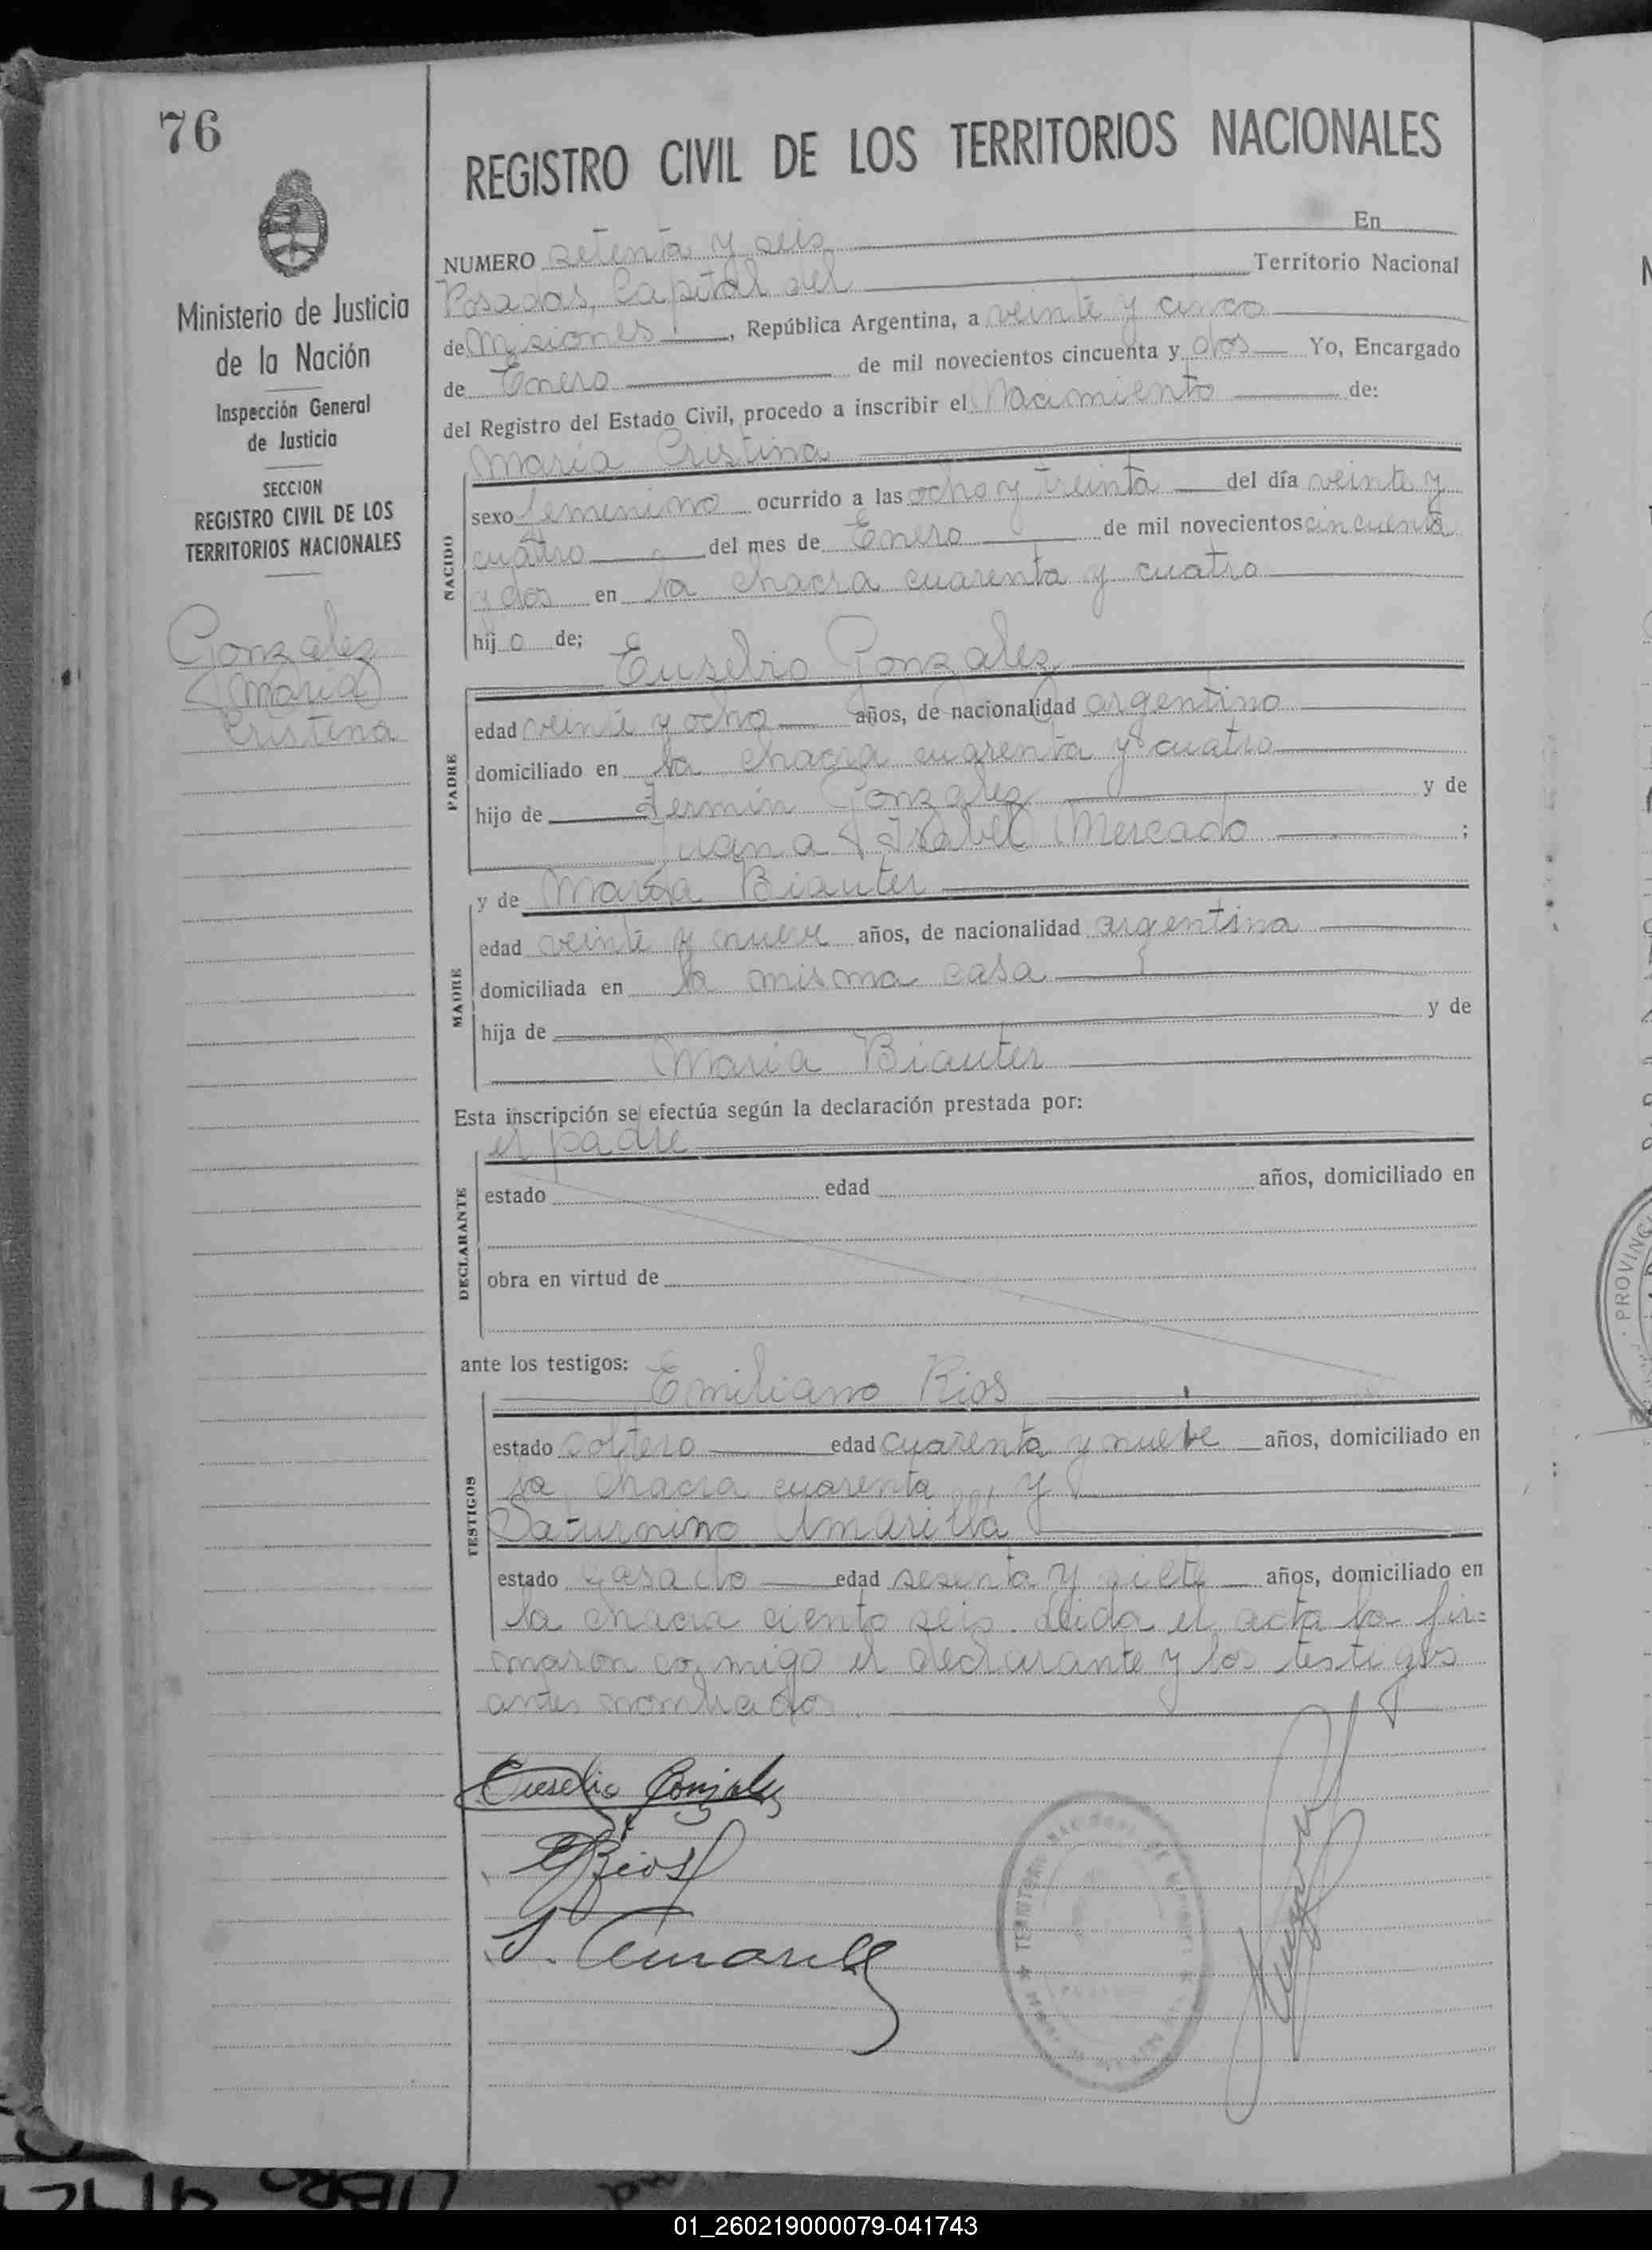 76
Ministerio de Justicia
de la Nación
Inspección General
de Justicia
SECCION
REGISTRO CIVIL DE LOS
TERRITORIOS NACIONALES
Gonzalez
Maria
Cristina
REGISTRO CIVIL DE LOS TERRITORIOS NACIONALES
NUMERO setenta y seis En
Posadas, Capital del Territorio Nacional
de Misiones, República Argentina, a veinte y cinco
de Enero de mil novecientos cincuenta y dos Yo, Encargado
del Registro del Estado Civil, procedo a inscribir el Nacimiento de:
Maria Cristina
NACIDO
sexo femenino ocurrido a las ocho y treinta del día veinte y
cuatro del mes de Enero de mil novecientos cincuenta
y dos en la chacra cuarenta y cuatro
hij a de;
Eusebio Gonzalez
PADRE
edad veinte y ocho años, de nacionalidad argentino
domiciliado en la chacra cuarenta y cuatro
hijo de Fermín Gonzalez y de
Juana Isabel Mercado ;
MADRE
y de Maria Biauter
edad veinte y nueve años, de nacionalidad argentina
domiciliada en la misma casa
hija de y de
Maria Biauter
Esta inscripción se efectúa según la declaración prestada por:
el padre
DECLARANTE
estado edad años, domiciliado en
obra en virtud de
ante los testigos:
Emiliano Rios
TESTIGOS
estado soltero edad cuarenta y nueve años, domiciliado en
la chacra cuarenta, y
Saturnino Amarilla
estado casado edad sesenta y siete años, domiciliado en
la chacra ciento seis. Leida el acta la fir=
maron conmigo el declarante y los testigos
antes nombrados.
Eusebio Gonzalez
E Rios
S. Amarilla
TERRITORIO NACIONAL DE
PROVINCI
01_260219000079-041743